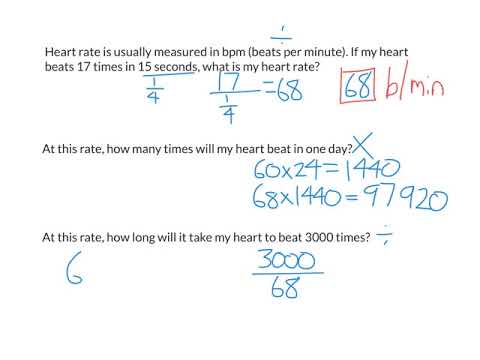 ÷
Heart rate is usually measured in bpm (beats per minute). If my heart
beats 17 times in 15 seconds, what is my heart rate?
1/4 17/(1/4) = 68 68 b/min
At this rate, how many times will my heart beat in one day? ×
60×24=1440
68×1440=97920
At this rate, how long will it take my heart to beat 3000 times? ÷
6 3000/68